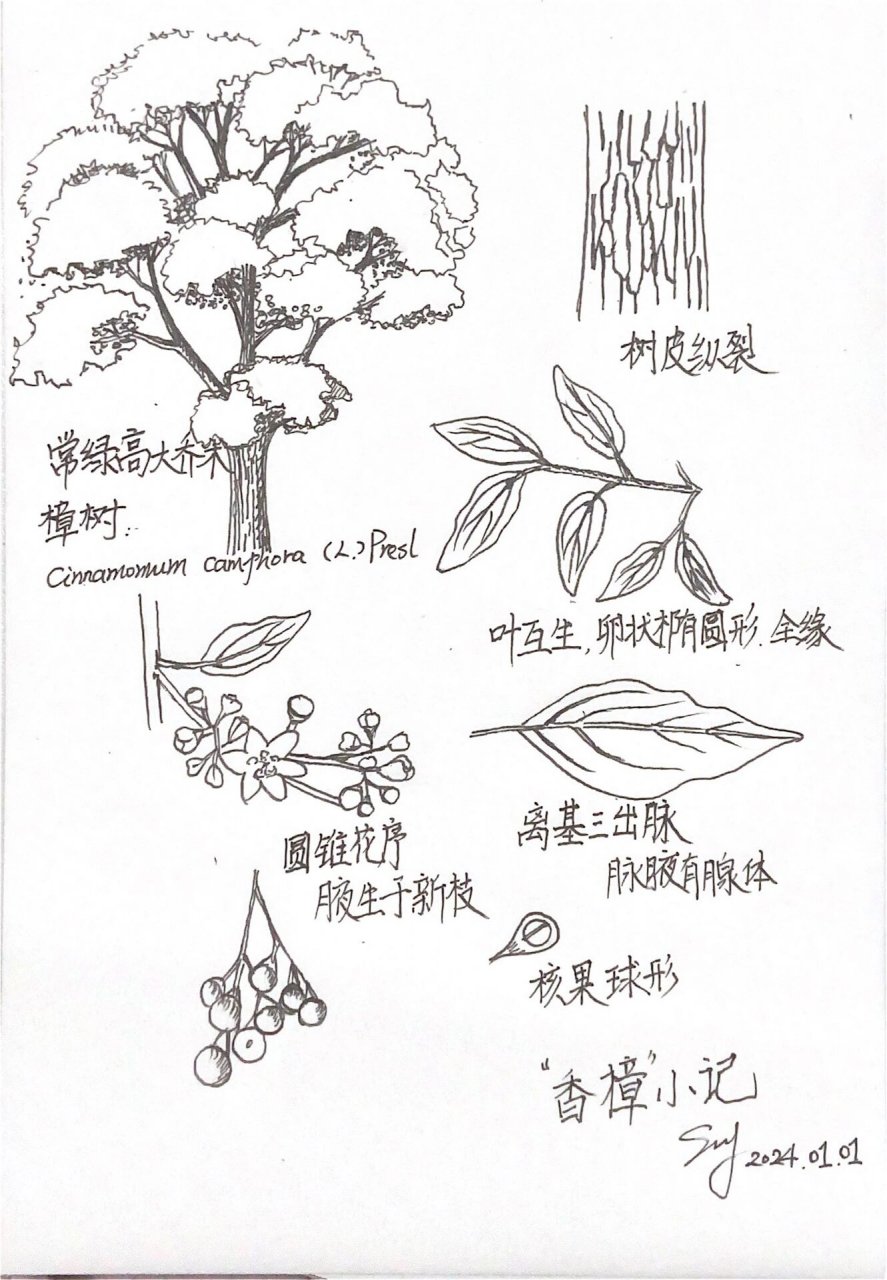 树皮纵裂
常绿高大乔木
樟树:
Cinnamomum camphora (L.) Presl
叶互生,卵状椭圆形.全缘
离基三出脉
脉腋有腺体
圆锥花序
腋生于新枝
核果球形
"香樟"小记
2024.01.01